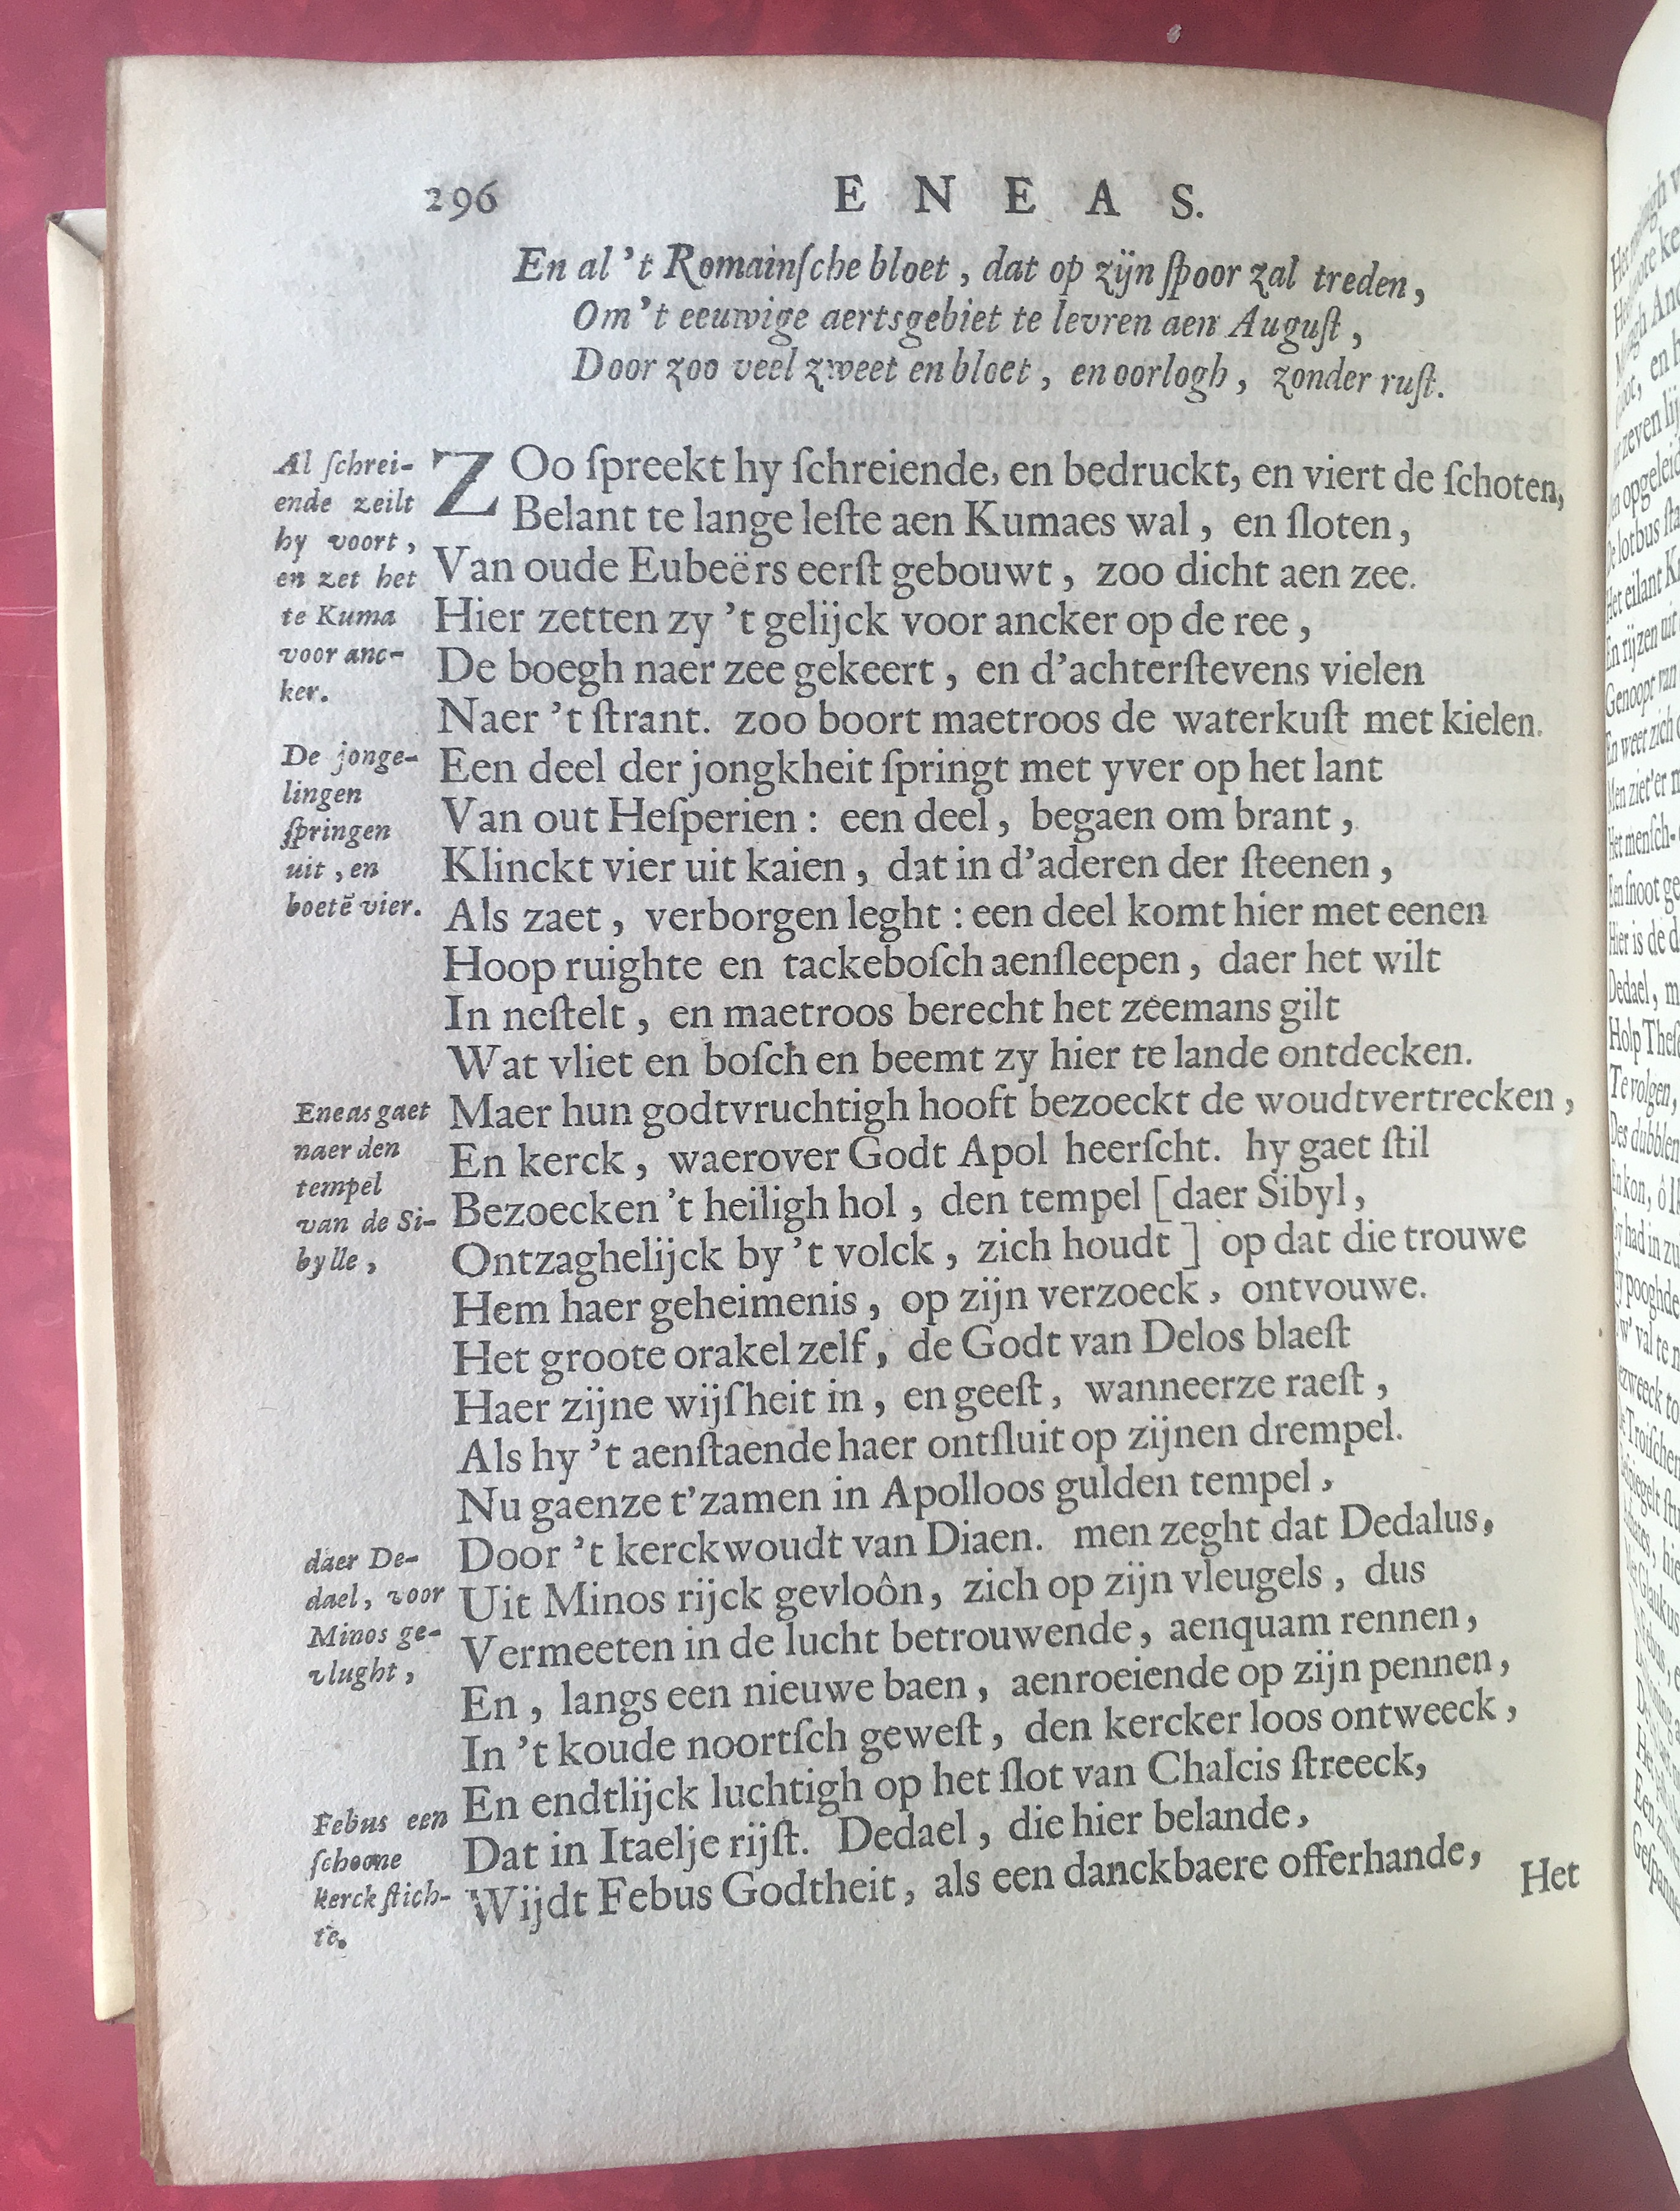 296
E N E A S.
En al 't Romainſche bloet, dat op zijn ſpoor zal treden,
Om 't eeuwige aertsgebiet te levren aen Auguſt,
Door zoo veel zweet en bloet, en oorlogh, zonder ruſt.
Al ſchrei-
ende zeilt
hy voort,
en zet het
te Kuma
voor anc-
ker.
ZOo ſpreekt hy ſchreiende, en bedruckt, en viert de ſchoten,
Belant te lange leſte aen Kumaes wal, en ſloten,
Van oude Eubeërs eerſt gebouwt, zoo dicht aen zee.
Hier zetten zy 't gelijck voor ancker op de ree,
De boegh naer zee gekeert, en d'achterſtevens vielen
Naer 't ſtrant. zoo boort maetroos de waterkuſt met kielen.
De jonge-
lingen
ſpringen
uit, en
boetē vier.
Een deel der jongkheit ſpringt met yver op het lant
Van out Heſperien: een deel, begaen om brant,
Klinckt vier uit kaien, dat in d'aderen der ſteenen,
Als zaet, verborgen leght: een deel komt hier met eenen
Hoop ruighte en tackeboſch aenſleepen, daer het wilt
In neſtelt, en maetroos berecht het zeemans gilt
Wat vliet en boſch en beemt zy hier te lande ontdecken.
Eneas gaet
naer den
tempel
van de Si-
bylle,
Maer hun godtvruchtigh hooft bezoeckt de woudtvertrecken,
En kerck, waerover Godt Apol heerſcht. hy gaet ſtil
Bezoecken 't heiligh hol, den tempel [daer Sibyl,
Ontzaghelijck by 't volck, zich houdt] op dat die trouwe
Hem haer geheimenis, op zijn verzoeck, ontvouwe.
Het groote orakel zelf, de Godt van Delos blaeſt
Haer zijne wijſheit in, en geeſt, wanneerze raeſt,
Als hy 't aenſtaende haer ontſluit op zijnen drempel.
Nu gaenze t'zamen in Apolloos gulden tempel,
daer De-
dael, voor
Minos ge-
vlught,
Door 't kerckwoudt van Diaen. men zeght dat Dedalus,
Uit Minos rijck gevloôn, zich op zijn vleugels, dus
Vermeeten in de lucht betrouwende, aenquam rennen,
En, langs een nieuwe baen, aenroeiende op zijn pennen,
In 't koude noortſch geweſt, den kercker loos ontweeck,
En endtlijck luchtigh op het ſlot van Chalcis ſtreeck,
Febus een
ſchoone
kerck ſtich-
te.
Dat in Itaelje rijſt. Dedael, die hier belande,
Wijdt Febus Godtheit, als een danckbaere offerhande,
Het